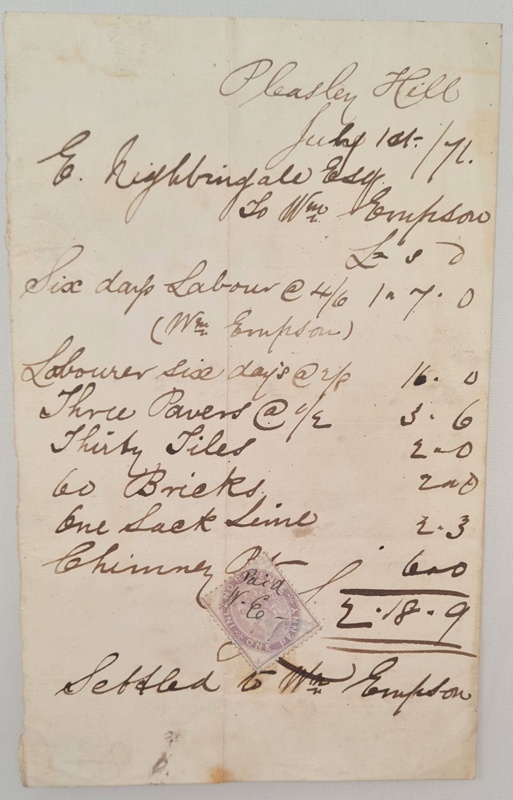 Pleasley Hill
July 1st /71.
E. Nightingale Esq.
To Wm Empson
L s D
Six days Labour @ 4/6 1 " 7 " 0
(Wm Empson)
Labourer six days @ 2/8 16 " 0
Three Pavers @ 1/2 3 " 6
Thirty Tiles 2 " 0
60 Bricks 2 " 0
One Sack Lime 2 " 3
Chimney 6 " 0
£ 2 " 18 " 9
Paid
W. E
INLAND REVENUE
ONE PENNY
Settled to Wm Empson